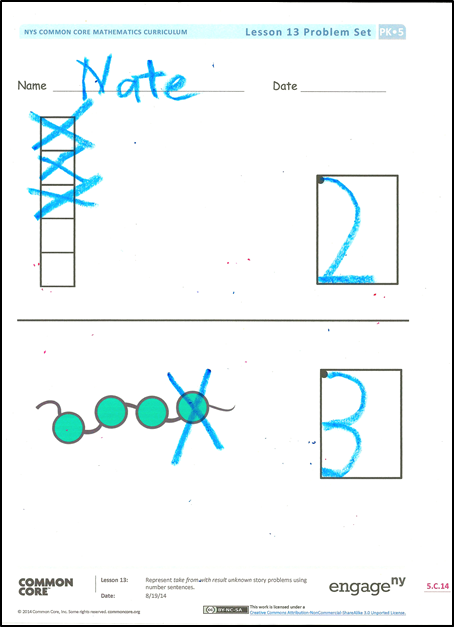 NYS COMMON CORE MATHEMATICS CURRICULUM Lesson 13 Problem Set PK•5
Name Nate Date
2
3
COMMON CORE™
Lesson 13: Represent take from with result unknown story problems using number sentences.
Date: 8/19/14
engageny
5.C.14
© 2014 Common Core, Inc. Some rights reserved. commoncore.org
CC BY-NC-SA
This work is licensed under a
Creative Commons Attribution-NonCommercial-ShareAlike 3.0 Unported License.